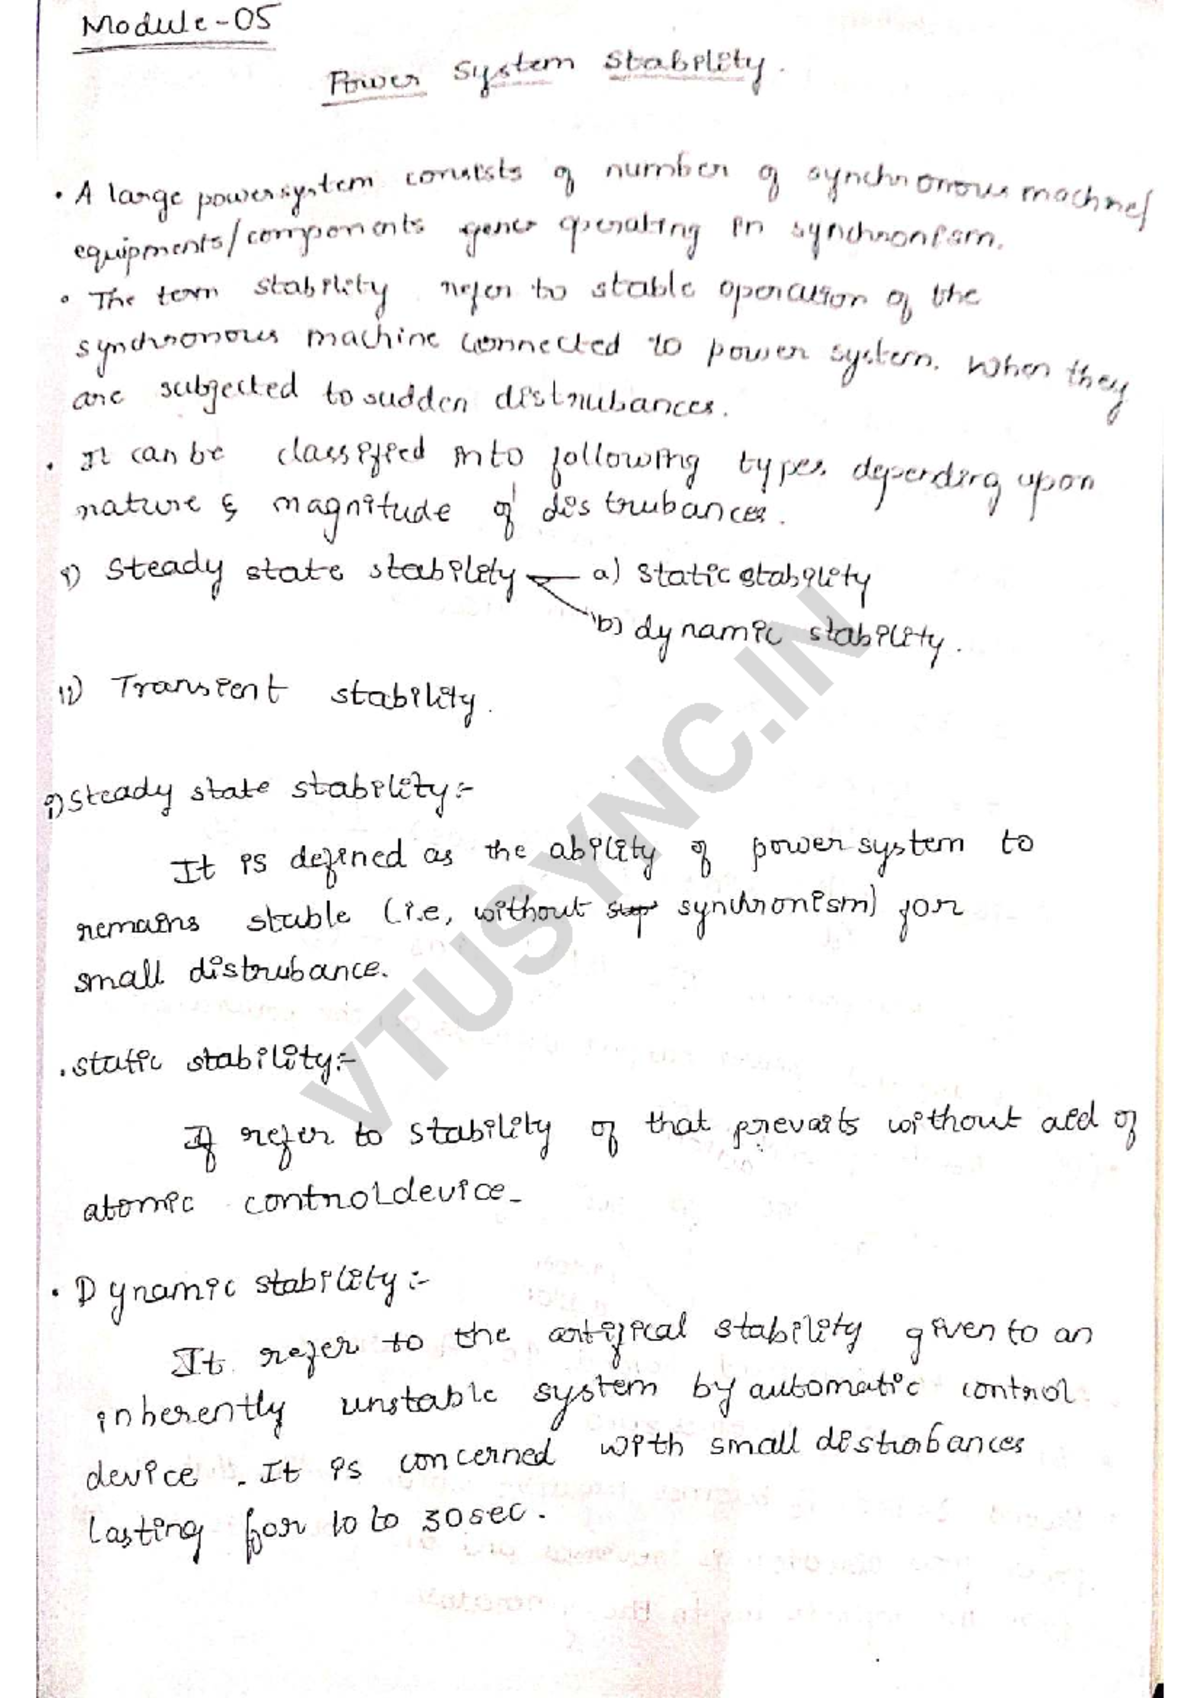 Module-05
Power System Stability.
• A large power system consists of number of synchronorous machines/
equipments/components gener operating in synchronism.
• The term stability refer to stable operation of the
synchronous machine connected to power system. When they
are subjected to sudden distrubances.
• It can be classified into following types, depending upon
nature & magnitude of distrubances.
i) Steady state stability a) static stability
b) dynamic stability.
ii) Transient stability.
i) Steady state stability:-
It is defined as the ability of power system to
remains stable (i.e, without sup synchronism) for
small distrubance.
. static stability:-
It refer to stability of that prevails without aid of
atomic control device.
• Dynamic stability:-
It refer to the artifical stability given to an
inherently unstable system by automatic control
device. It is concerned with small disturbances
lasting for 10 to 30sec.
VTUSYNC.IN